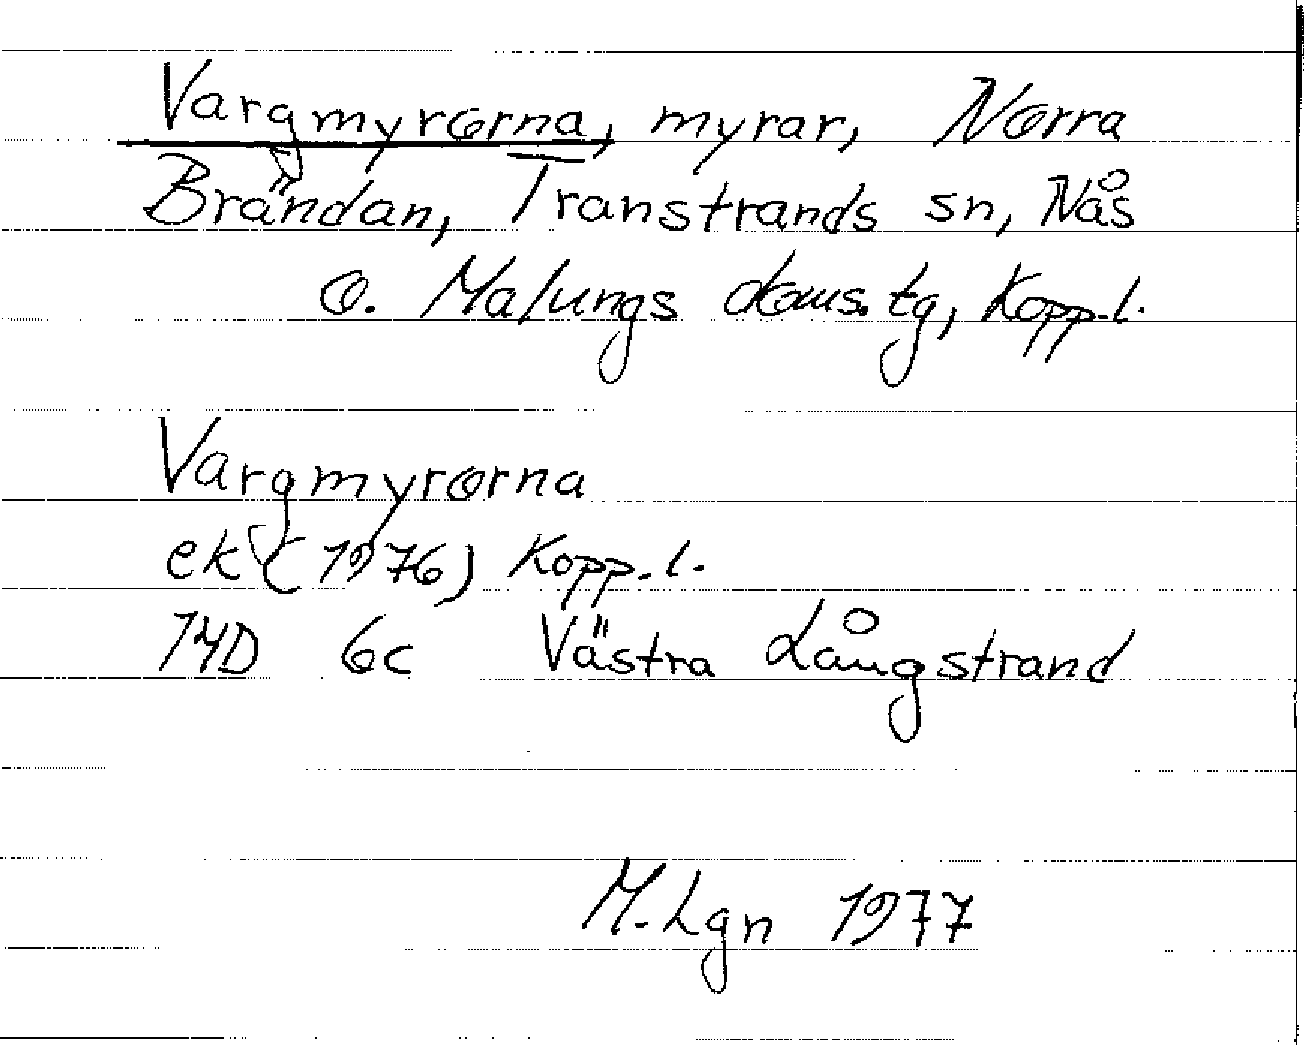 Vargmyrorna, myrar, Norra
Brändan, Transtrands sn, Nås
o. Malungs doms. tg, Kopp. l.
Vargmyrorna
ek (1976) Kopp. l.
14D 6c Västra Långstrand
M. Lgn 1977